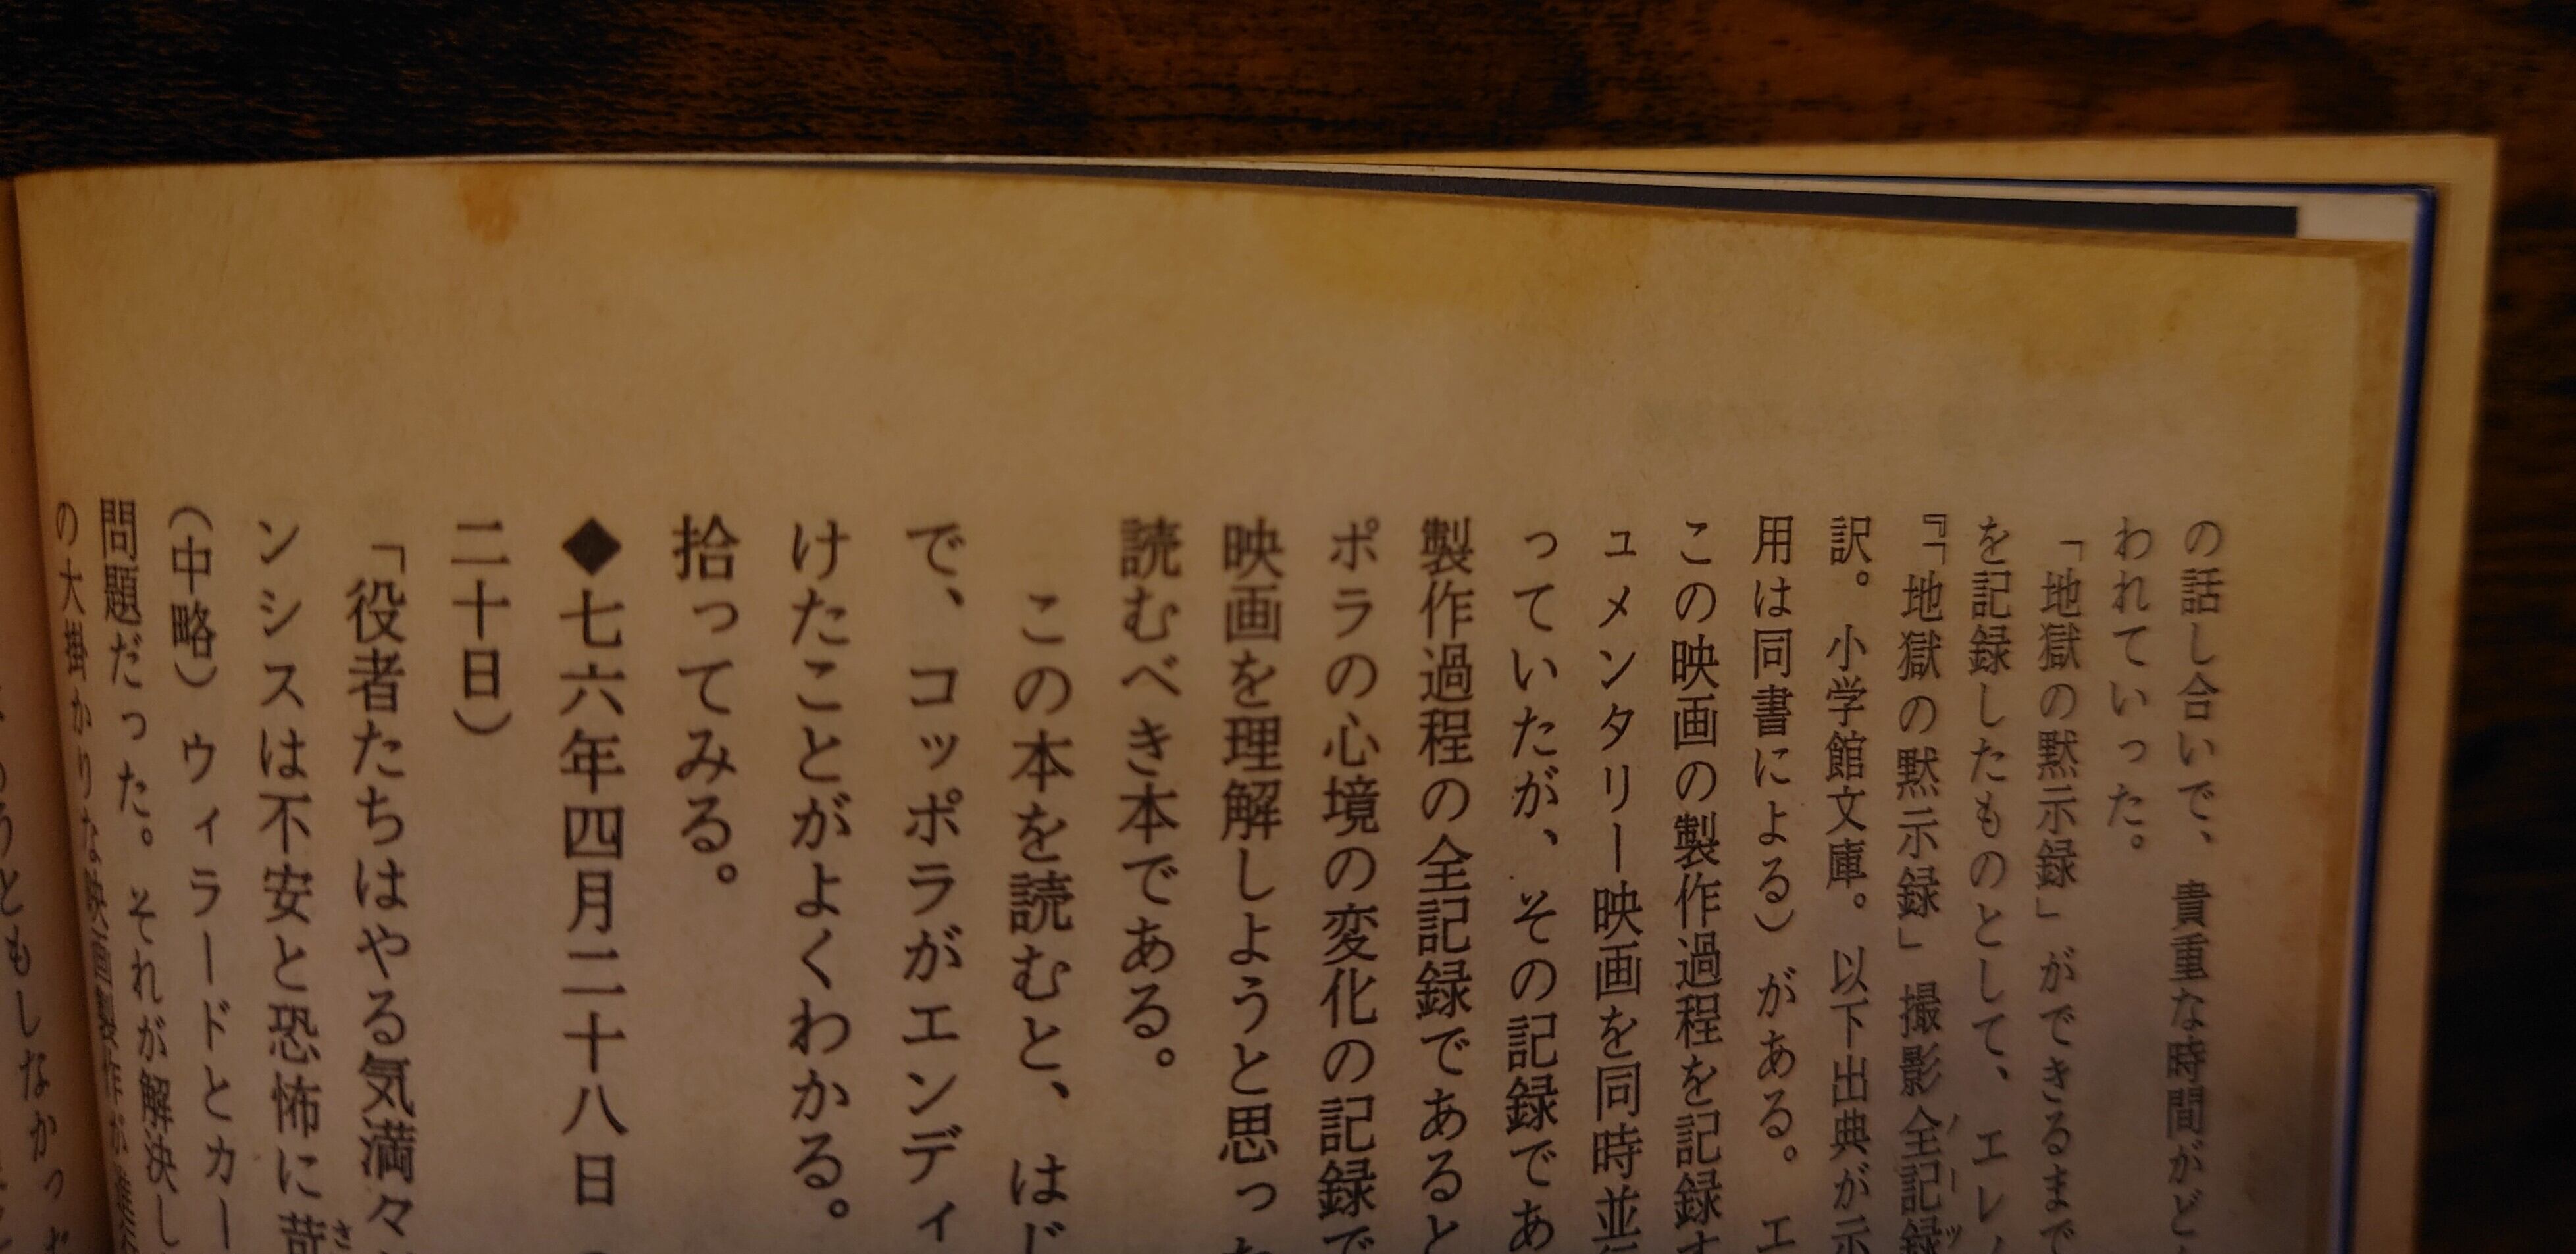 の話し合いで、貴重な時間がど
われていった。
「地獄の黙示録」ができるまで
を記録したものとして、エレノ
『「地獄の黙示録」撮影全記録
訳。小学館文庫。以下出典が示
用は同書による）がある。エ
この映画の製作過程を記録す
ュメンタリー映画を同時並行
っていたが、その記録であ
製作過程の全記録であると
ポラの心境の変化の記録で
映画を理解しようと思った
読むべき本である。
この本を読むと、はじ
で、コッポラがエンディ
けたことがよくわかる。
拾ってみる。
◆七六年四月二十八日
二十日）
「役者たちはやる気満々
ンシスは不安と恐怖に苛
（中略）ウィラードとカー
問題だった。それが解決し
の大掛かりな映画製作が
うともしなかった